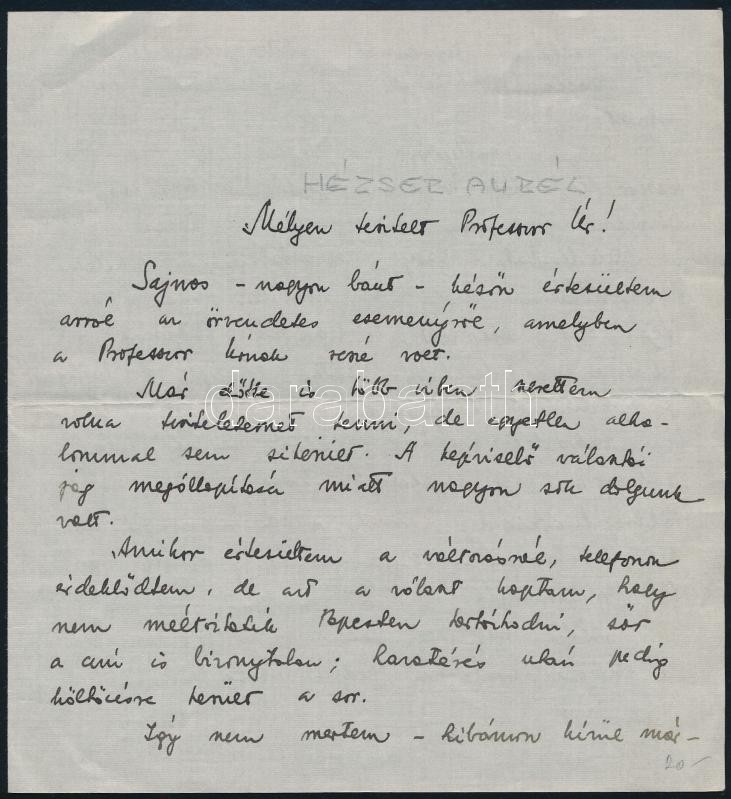 HÉZSER AURÉL
Mélyen tisztelt Professzor Úr!
Sajnos – nagyon bánt – későn értesültem
arról az örvendetes eseményről, amelyben
a Professzor Úrnak része volt.
Már előtte is több ízben szerettem
volna tiszteletemet tenni, de egyetlen alka-
lommal sem sikerült. A képviselő választói
jog megállapítása miatt nagyon sok dolgunk
volt.
Amikor értesültem a változásról, telefonon
érdeklődtem, de azt a választ kaptam, hogy
nem méltóztatik Bpesten tartózkodni, sőt
a cím is bizonytalan; hazatérés után pedig
költözésre került a sor.
Így nem mertem – hibámon kívül már –
20 –
darabanth